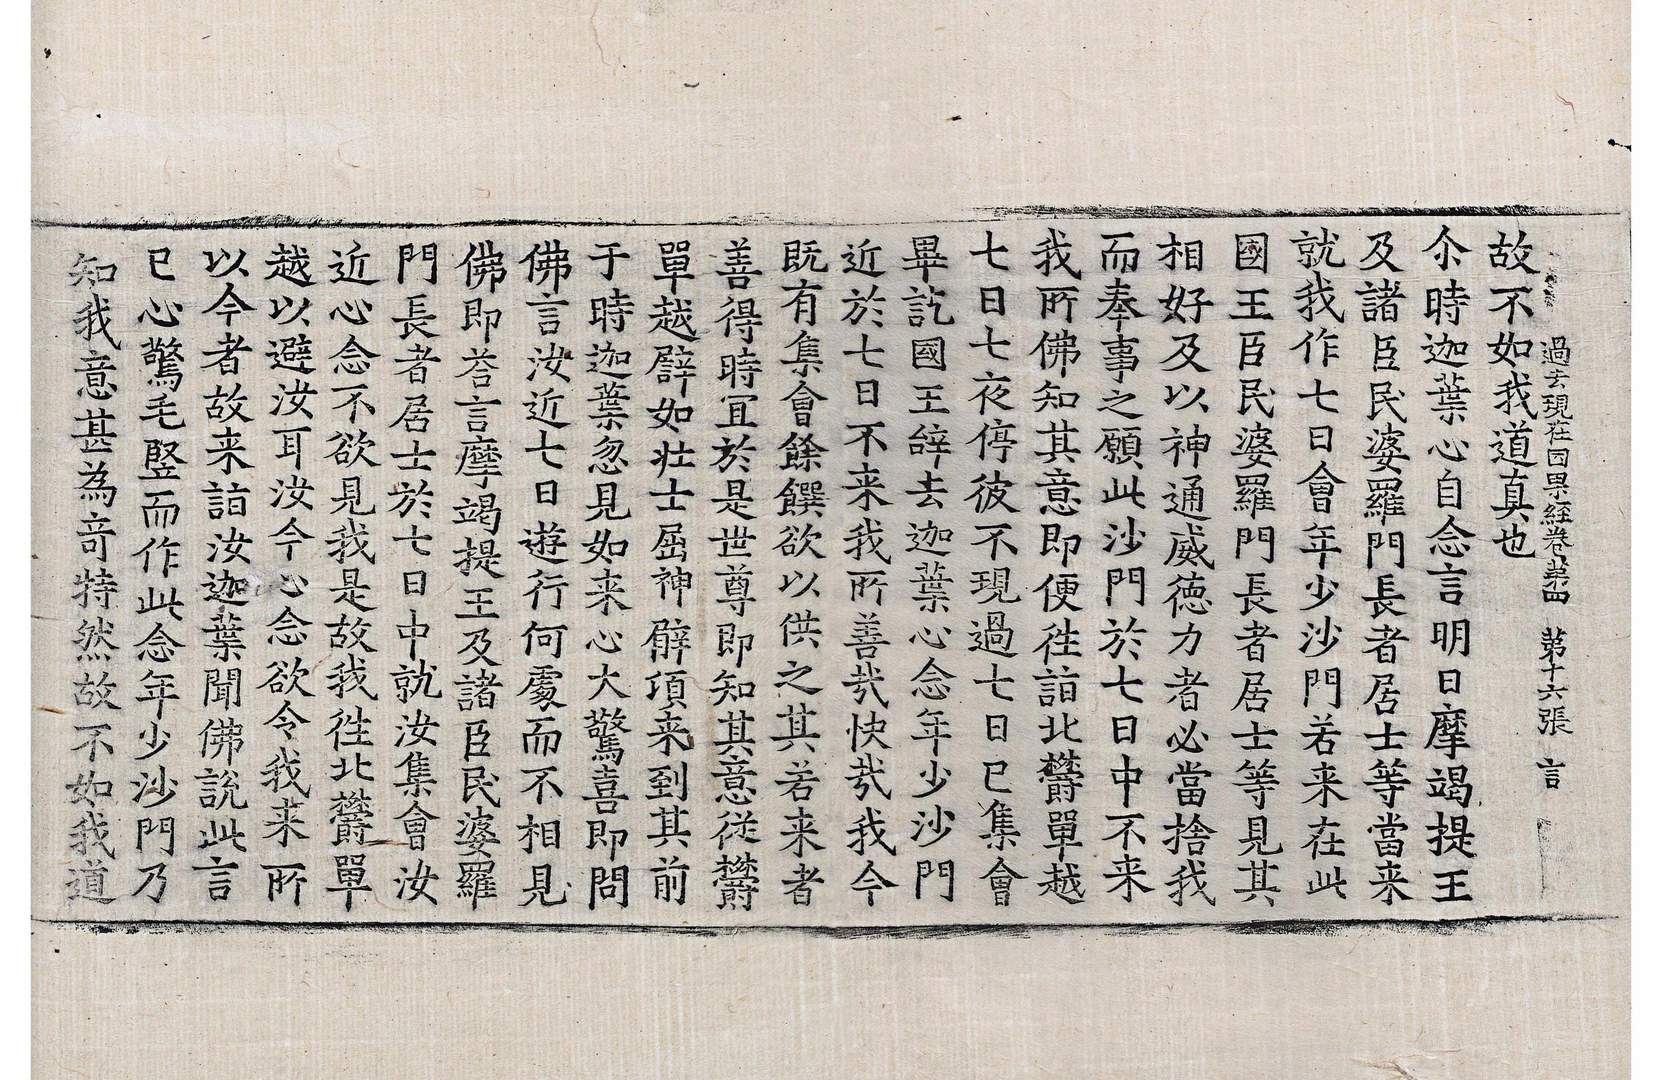 過去現在因果經卷第四 第十六張 言
故不如我道真也
尒時迦葉心自念言明日摩竭提王
及諸臣民婆羅門長者居士等當来
就我作七日會年少沙門若来在此
國王臣民婆羅門長者居士等見其
相好及以神通威德力者必當捨我
而奉事之願此沙門於七日中不来
我所佛知其意即便徃詣北欝單越
七日七夜停彼不現過七日已集會
畢訖國王辝去迦葉心念年少沙門
近於七日不来我所善㢤快㢤我今
既有集會餘饌欲以供之其若来者
善得時冝於是世尊即知其意從欝
單越譬如壯士屈神臂頃来到其前
于時迦葉忽見如来心大驚喜即問
佛言汝近七日遊行何處而不相見
佛即荅言摩竭提王及諸臣民婆羅
門長者居士於七日中就汝集會汝
近心念不欲見我是故我徃北欝單
越以避汝耳汝今心念欲令我来所
以今者故来詣汝迦葉聞佛說此言
已心驚毛竪而作此念年少沙門乃
知我意甚為竒特然故不如我道